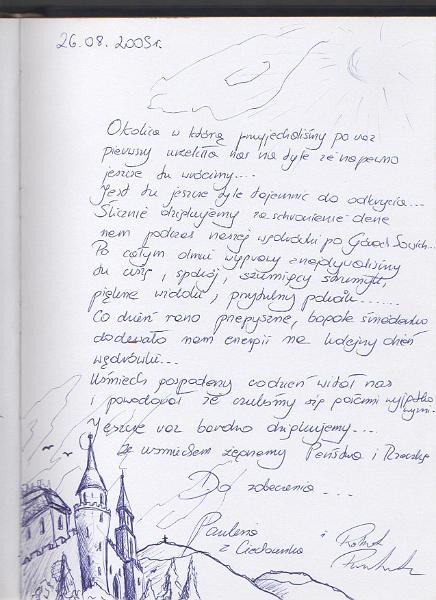 26.08.2005r.
Okolica w którą przyjechaliśmy po raz
pierwszy urzekła nas na tyle że na pewno
jeszcze tu wrócimy....
Jest tu jeszcze tyle tajemnic do odkrycia...
Ślicznie dziękujemy za schronienie dane
nam podczas naszej wędrówki po Górach Sowich...
Po całym dniu wyprawy znajdywaliśmy
tu ciszę, spokój, szumiący strumyk,
piękne widoki, przytulny pokoik.......
Co dzień rano przepyszne, bogate śniadanko
dodawało nam energii na kolejny dzień
wędrówki...
Uśmiech gospodarzy codzień witał nas
i powodował że czuliśmy się gośćmi wyjątko
wymi.
Jeszcze raz bardzo dziękujemy...
Ze uśmiechem żegnamy Państwa i
Do zobaczenia...
Paulina i
z Ciechanka